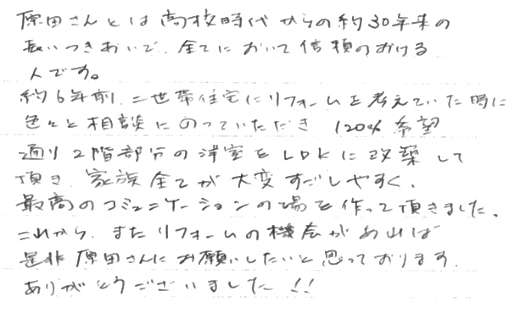 原田さんとは高校時代からの約30年来の
長いつきあいで、全てにおいて信頼のおける
人です。
約6年前、二世帯住宅にリフォームを考えていた時に
色々と相談にのっていただき 120% 希望
通り2階部分の洋室をLDKに改築して
頂き、家族全てが大変すごしやすく、
最高のコミュニケーションの場を作って頂きました。
これから、またリフォームの機会があれば
是非原田さんにお願いしたいと思っております。
ありがとうございました!!